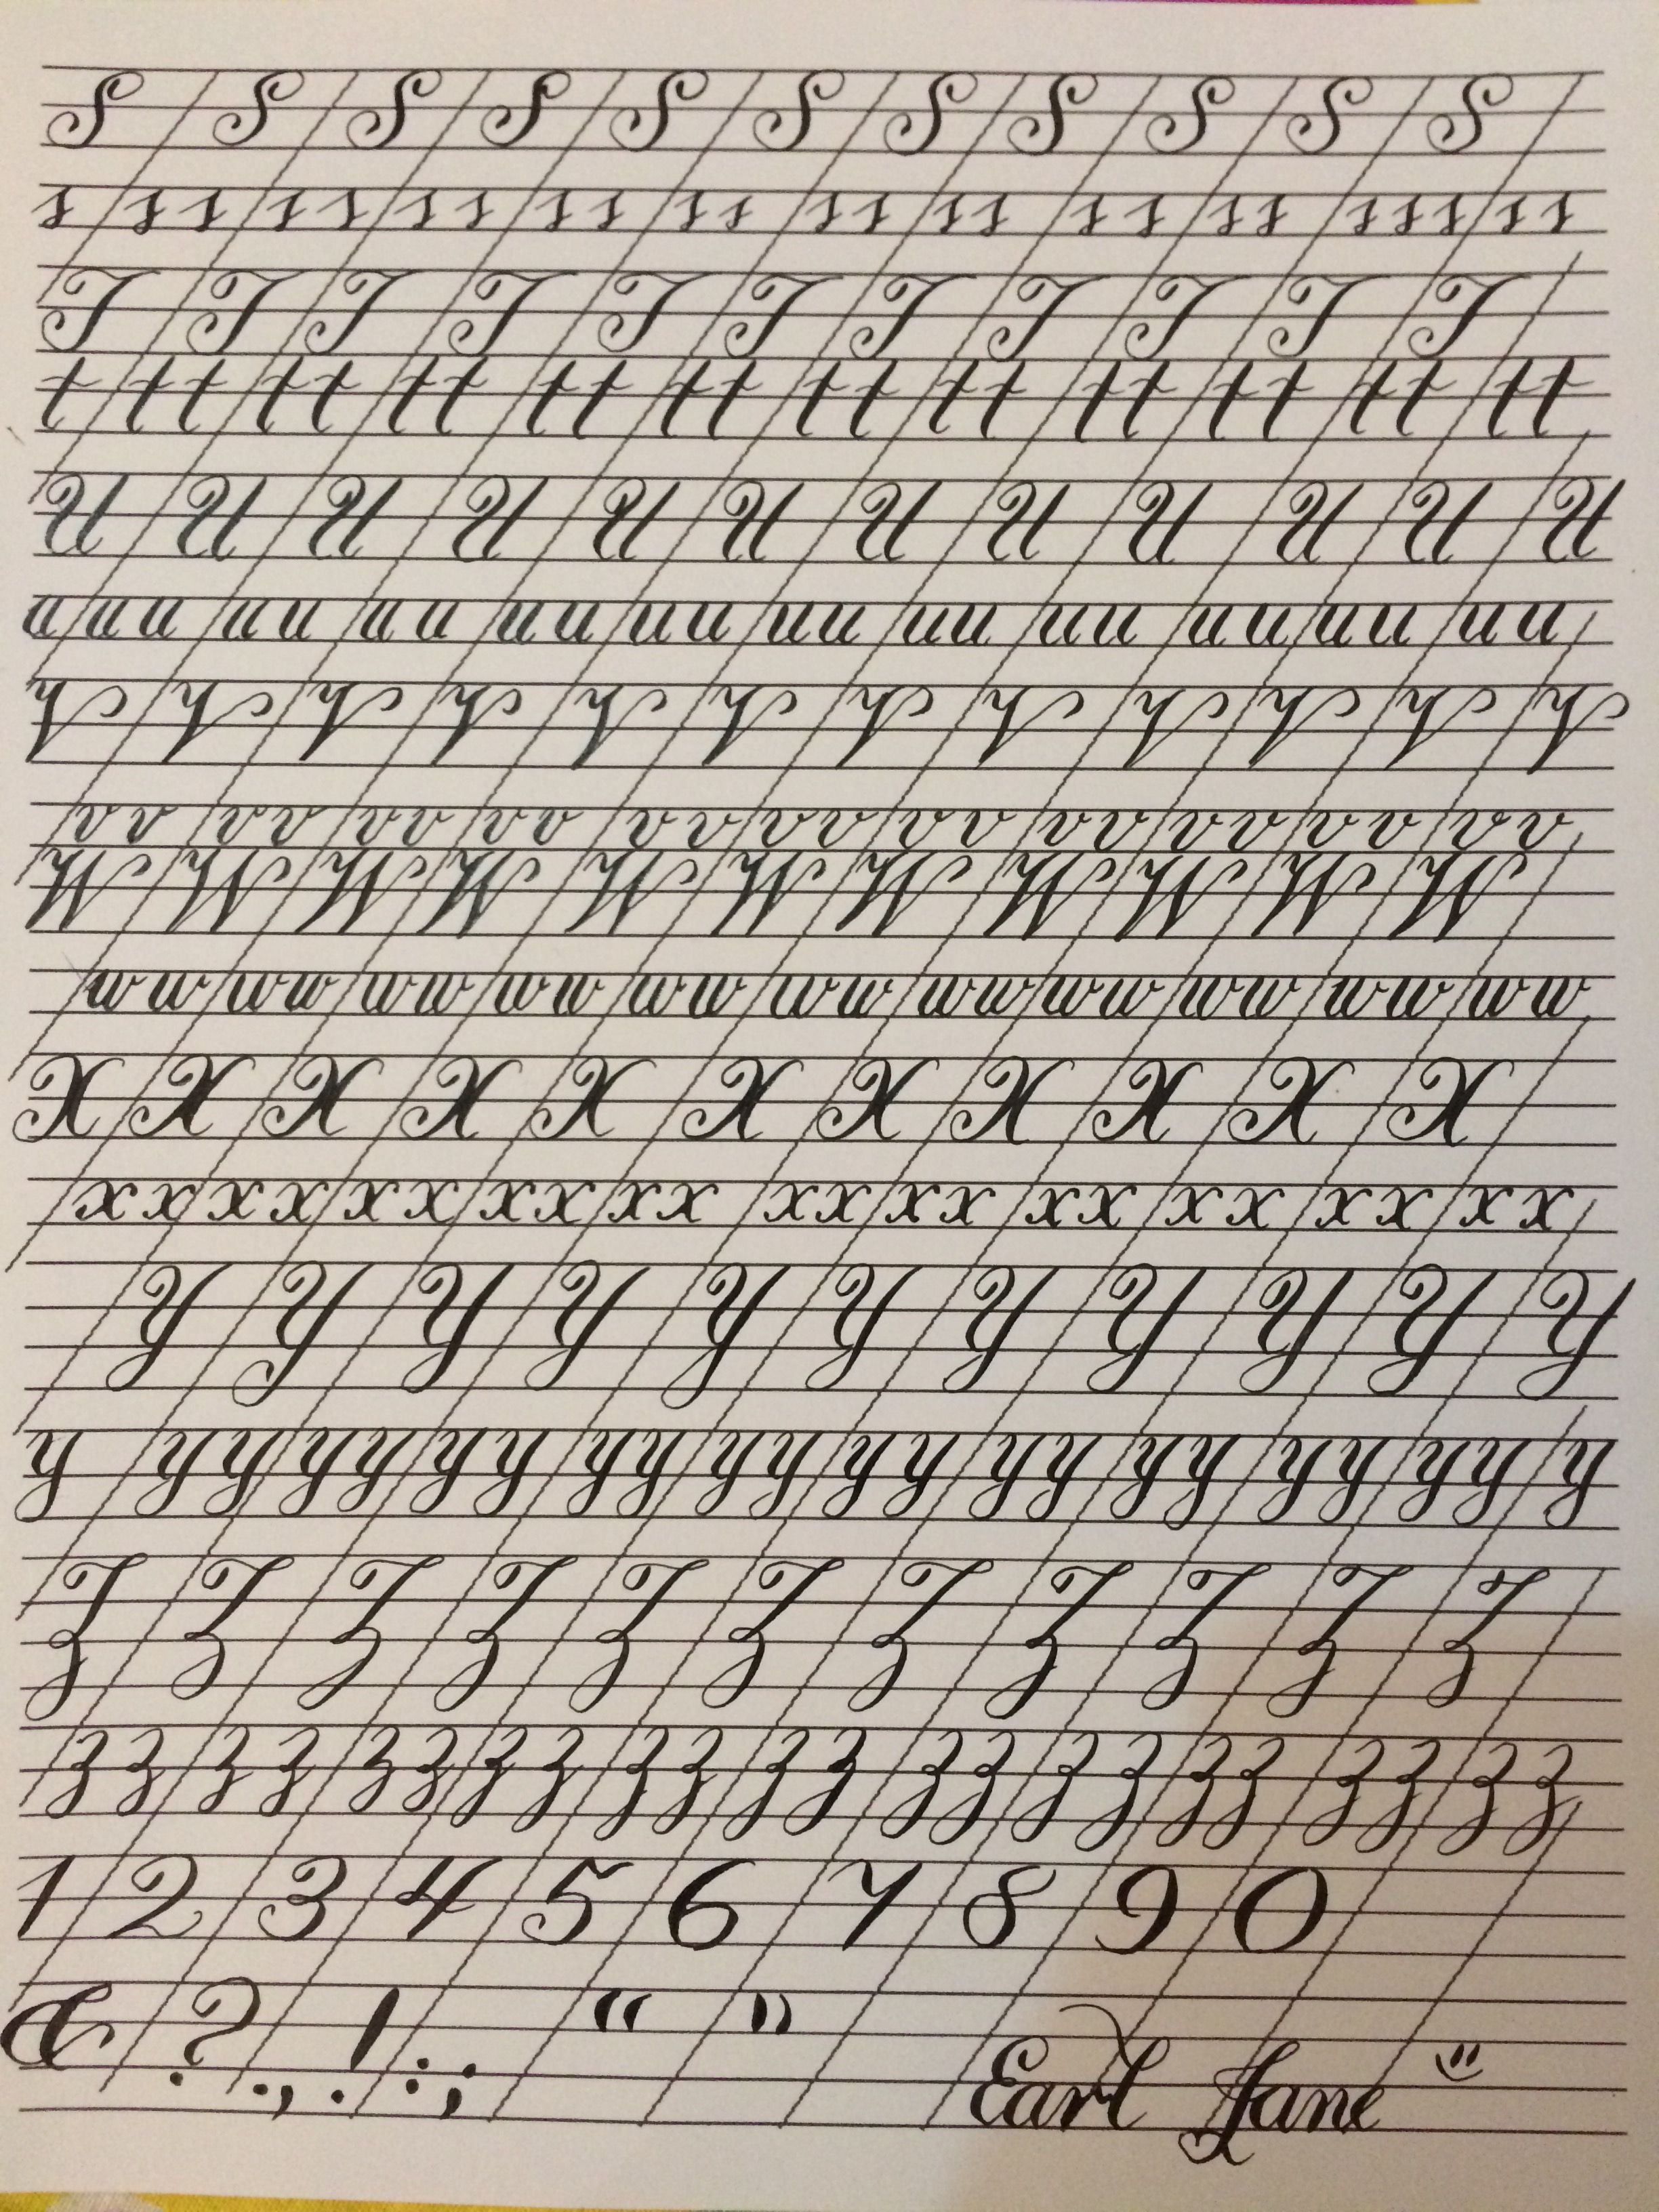 S S S S S S S S S S S
s ss ss ss ss ss ss ss ss ss sss ss
T T T T T T T T T T T
t tt tt tt tt tt tt tt tt tt tt tt
U U U U U U U U U U U U
u uu uu uu uu uu uu uu uu uu uu uu
V V V V V V V V V V V V
vv vv vv vv vv vv vv vv vv vv vv
W W W W W W W W W W W
ww ww ww ww ww ww ww ww ww ww ww
X X X X X X X X X X X
xx xx xx xx xx xx xx xx xx xx xx
Y Y Y Y Y Y Y Y Y Y Y
y yy yy yy yy yy yy yy yy yy yy y
Z Z Z Z Z Z Z Z Z Z Z
zz zz zz zz zz zz zz zz zz zz zz
1 2 3 4 5 6 7 8 9 0
& ? . , ! : ; “ ” Earl Jane